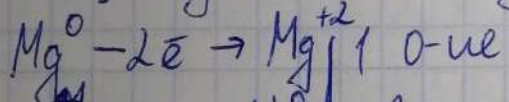 Mg⁰ − 2ē → Mg⁺² | 1 о-ие